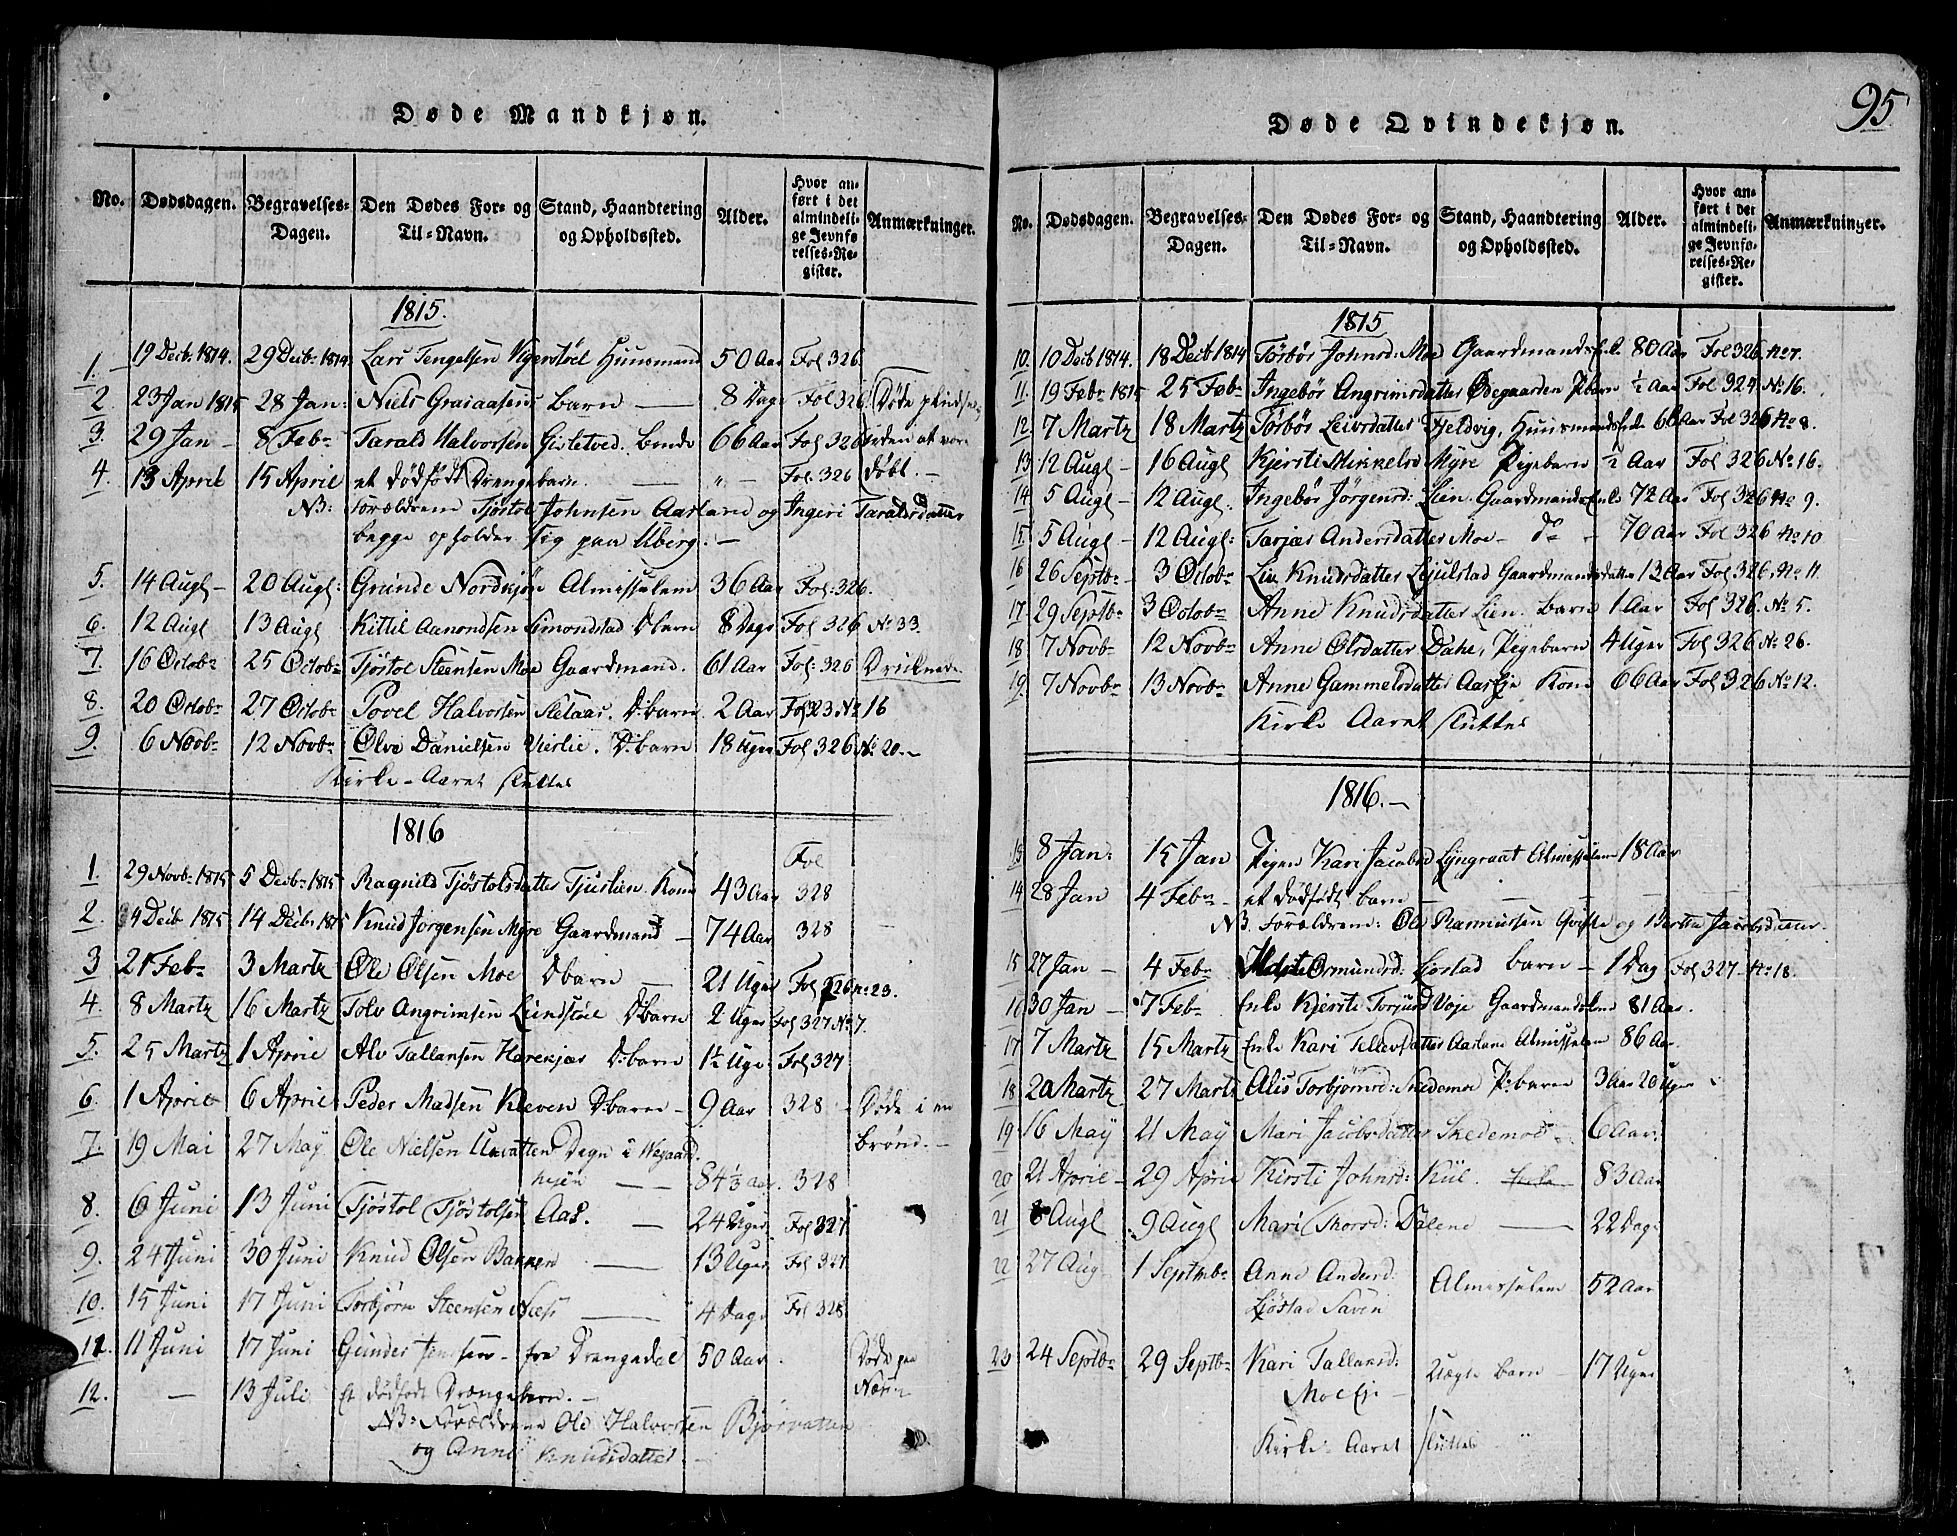 Døde Mandkjøn.
No. Dødsdagen. Begravelses-Dagen. Den Dødes For- og Til-Navn. Stand, Haandtering og Opholdssted. Alder. Hvor anført i det almindelige Jevnførelses-Register. Anmærkninger.
1815.
1. 19 Decb. 1814. 29 Decb: 1814 Lars Tengelsen Huusmand 50 Aar Fol 326
2. 23 Jan 1815 28 Jan: Niels Barn 8 Dage Fol 326 Døde
3. 29 Jan 8 Feb: Tarald Halvorsen Gislefved. Bonde 66 Aar Fol 326 uden at være
4. 13 April 15 April et dødfødt Drengebarn. — " — Fol. 326 døbt. —
NB: Forældrene Tjøstol Johnsen Aasland og Ingeri Taraldsdatter
begge opholder sig paa Uberg. —
5. 14 Augl 20 Augl: Gunde Nordkjøn Almisselem 36 Aar Fol: 326.
6. 12 Augl 13 Augl Kittil Aanondsen Simonstad D:barn 8 Dage Fol 326 No 33.
7. 16 Octob: 25 Octob: Tjøstol Steensen Moe Gaardmand. 61 Aar Fol: 326 Druknede
8. 20 Octob: 27 Octob: Povel Halvorsen D:barn 2 Aar No 16
9. 6 Novb: 12 Novb: Olve Danielsen Vierlie. D:barn 18 Uger Fol 326 No 20.
Kirke-Aaret sluttes
1816
Fol
1. 29 Novb: 1815 5 Decb: 1815 Ragnild Tjøstolsdatter Tjuslien Kone 43 Aar 328
2. 4 Decb 1815 14 Decb: 1815 Knud Jørgensen Myre Gaardmand — 74 Aar 328
3 21 Feb: 3 Martz Ole Olsen Moe D:barn — 21 Uger Fol 326 No 23.
4. 8 Martz 16 Martz Tolv Angrimsen Liendstøl D:barn 2 Uger Fol 327 No 7.
5. 25 Martz 1 April Alv Tallaksen Harekjær D:barn 1½ Uge Fol 327
6. 1 April 6 April Peder Madsen Kleven D:barn — 9 Aar 328 Døde i en
7. 19 Mai 27 May Ole Nielsen Ubvatten Degn i Wegaard brønd. —
84 ½ Aar. 328
8. 6 Juni 13 Juni Tjøstol Tjøstolsen Aas. — 24 Uger Fol 327
9. 24 Juni 30 Juni Knud Olsen Bakken — 13 Uger Fol 327
10. 15 Juni 17 Juni Torbjørn Steensen Næss — 4 Dage Fol 328
11. 11 Juni 17 Juni Gunder Jensen fra Drangedal 50 Aar Døde paa
12. — 13 Juli Et dødfødt Drængebarn. —
NB: Forældrene Ole Halvorsen Bjorvatten
og Anne Knudsdatter —
95
Døde Qvindekjøn.
No. Dødsdagen. Begravelses-Dagen. Den Dødes For- og Til-Navn. Stand, Haandtering og Opholdssted. Alder. Hvor anført i det almindelige Jevnførelses-Register. Anmærkninger.
1815
10. 10 Decb 1814. 18 Decb 1814 Torbør Johnsd: Moe Gaardmands Enke 80 Aar Fol 326 No 7.
11. 19 Feb: 1815 25 Feb: Ingebør Angrimsdatter Ødegaarden P:barn ½ Aar Fol 324 No 16.
12. 7 Martz 18 Martz Torbør Leivsdatter Fjeldvig, Huusmands 66 Aar Fol 326 No 8.
13 12 Augl — 16 Augl Kjersti Mikkelsd Myre Pigebarn ½ Aar Fol 326 No 16.
14 5 Augl — 12 Augl. Ingebør Jørgensd: Lien Gaardmands Enke 72 Aar Fol 326 No 9.
15 5 Augl — 12 Augl: Tarjær Andersdatter Moe — do — 70 Aar Fol 326 No 10
16 26 Septb: 3 Octob: Liv Knudsdatter Gaardmands datter 13 Aar Fol 326 No 11.
17. 29 Septb: 3 Octob: Anne Knudsdatter Lien. Barn 1 Aar Fol 326. No 5.
18 7 Novb: 12 Novb: Anne Olsdatter Dahl, Pigebarn 4 Uger Fol 326 No 26.
19. 7 Novb: 13 Novb: Anne Gammelsdatter Kone 66 Aar Fol 326 No 12.
Kirke Aaret sluttes
1816. —
13 8 Jan: 15 Jan Pigen Kari Jacobsd Lyngraat Almisselem 18 Aar
14 28 Jan 4 Feb: — et dødfødt barn —
NB. Forældrene: Ole Rasmussen og Berthe Jacobsdatter.
15 27 Jan — 4 Feb: Ormundsd: Ljøstad barn — 1 Dag Fol 327 — No 18.
16 30 Jan — 7 Feb: Enke Kjersti Torjusd Voje Gaardmands 81 Aar.
17 7 Martz 15 Martz Enke Kari Tellevsdatter Aasland Almisselem 86 Aar.
18 20 Martz 27 Martz Alis Torbjørnsd: Skedemoe P:barn 3 Aar 20 Uger
19 16 May 21 May Mari Jacobsdatter Skedemoe — 6 Aar.
20 21 April — 29 April Kirsti Johnsd: Kiil. 83 Aar
21 8 Augl 9 Augl Mari Thorsd: Dalene — 22 Dage
22 27 Aug 1 Septemb: Anne Andersd: Ljøstad Almisselem 52 Aar
23 24 Septb: 29 Septb: Kari Tallaksd: Moe Uægte barn — 17 Uger
Kirke-Aaret sluttes